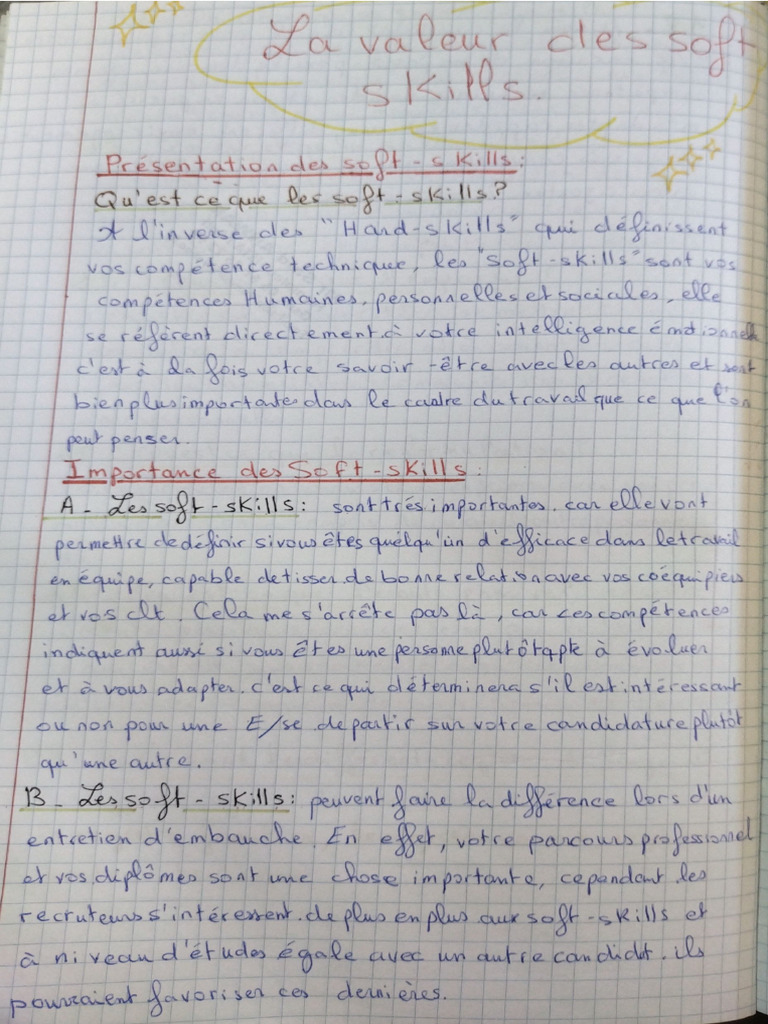 La valeur des soft
skills.
Présentation des soft-skills:
Qu'est ce que les soft-skills?
A l'inverse des "Hard-skills" qui définissent
vos compétence technique, les "soft-skills" sont vos
compétences Humaines, personnelles et sociales, elle
se réfèrent directement à votre intelligence émotionnel
c'est à la fois votre savoir-être avec les autres et sont
bien plus importante dans le cadre du travail que ce que l'on
peut penser.
Importance des Soft-skills:
A - Les soft-skills: sont très importantes. car elle vont
permettre de définir si vous êtes quelqu'un d'efficace dans le travail
en équipe, capable de tisser de bonne relation avec vos coéquipiers
et vos clt. Cela me s'arrête pas là, car ces compétences
indiquent aussi si vous êtes une personne plutôt apte à évoluer
et à vous adapter. c'est ce qui déterminera s'il est intéressant
ou non pour une E/se de partir sur votre candidature plutôt
qu'une autre.
B - Les soft-skills: peuvent faire la différence lors d'un
entretien d'embauche. En effet, votre parcours professionnel
et vos diplômes sont une chose importante, cependant les
recruteurs s'intéressent de plus en plus aux soft-skills et
à niveau d'études égale avec un autre candidat. ils
pourraient favoriser ces dernières.